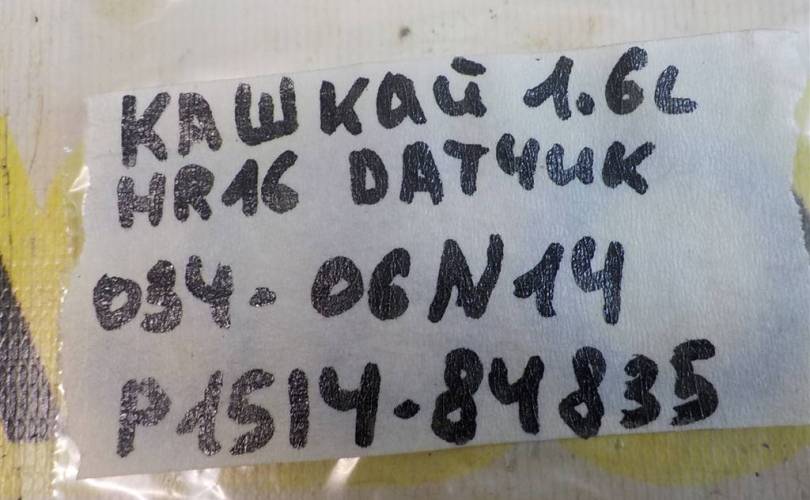 КАШКАЙ 1.6L
HR16 DАТЧИК
034-06N14
P1514-84835